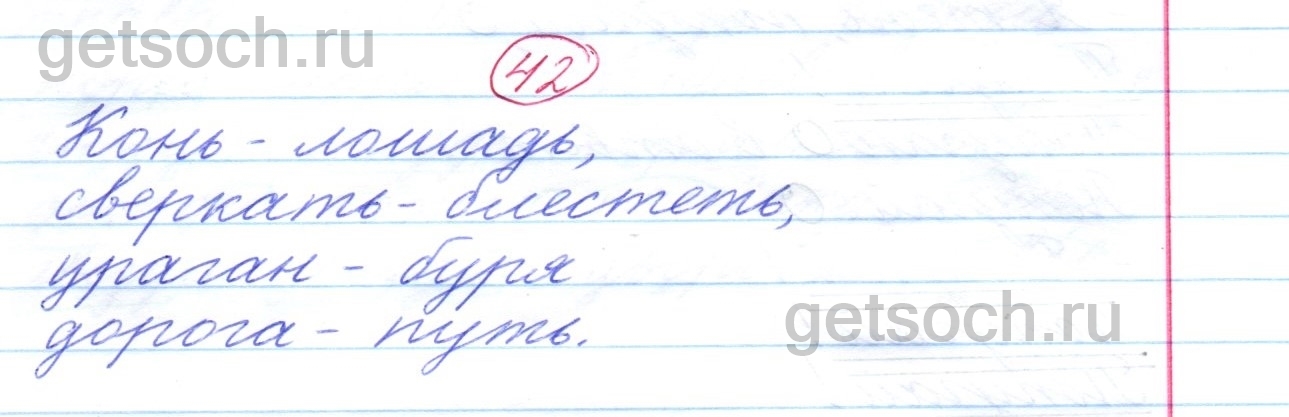 getsoch.ru
42
Конь - лошадь,
сверкать - блестеть,
ураган - буря
дорога - путь.
getsoch.ru